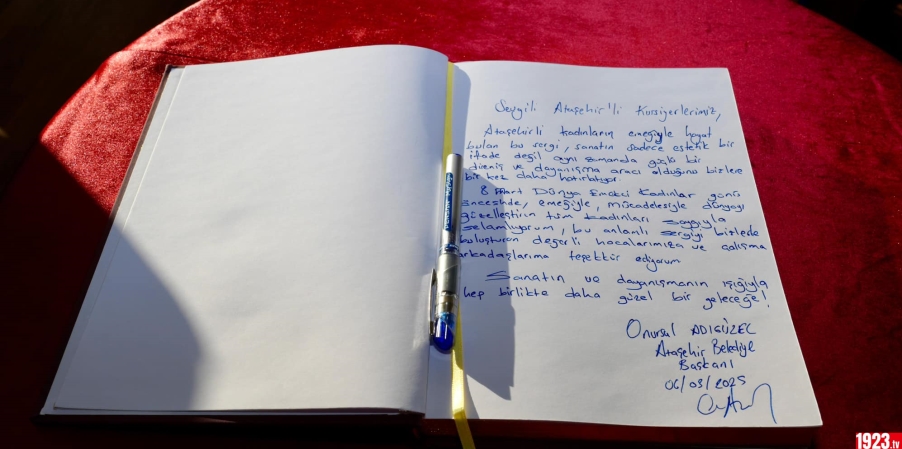 Sevgili Ataşehir'li Kursiyerlerimiz,
Ataşehirli kadınların emeğiyle hayat
bulan bu sergi, sanatın sadece estetik bir
ifade değil aynı zamanda güçlü bir
direniş ve dayanışma aracı olduğunu bizlere
bir kez daha hatırlatıyor.
8 Mart Dünya Emekci Kadınlar günü
öncesinde, emeğiyle, mücadelesiyle dünyayı
güzelleştiren tüm kadınları saygıyla
selamlıyorum, bu anlamlı sergiyi bizlerle
buluşturan değerli hocalarımıza ve çalışma
arkadaşlarıma teşekkür ediyorum
Sanatın ve dayanışmanın ışığıyla
hep birlikte daha güzel bir geleceğe!
Onursal ADIGÜZEL
Ataşehir Belediye
Başkanı
06/03/2025
1923.tv